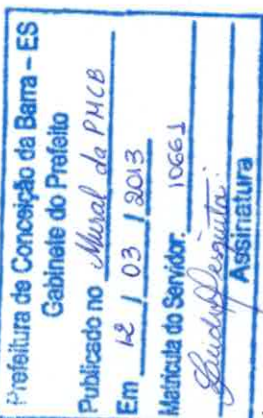 Prefeitura de Conceição da Barra - ES
Gabinete do Prefeito
Publicado no Mural da PMCB
Em 12 / 03 / 2013
Matrícula do Servidor. 10661
Assinatura